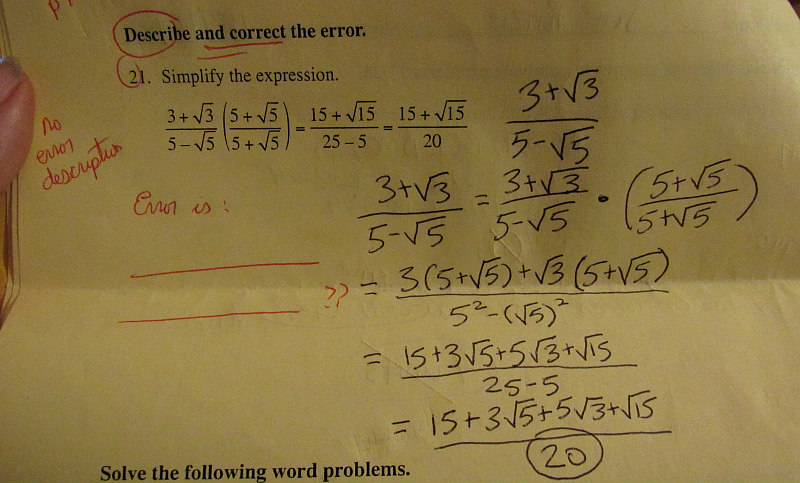 Describe and correct the error.
21. Simplify the expression.
3+√3/5−√5 (5+√5/5+√5) = 15+√15/25−5 = 15+√15/20
3+√3/5-√5
no
error
description
Error is:
3+√3/5-√5 = 3+√3/5-√5 • (5+√5/5+√5)
?? = 3(5+√5)+√3(5+√5)/5²-(√5)²
= 15+3√5+5√3+√15/25-5
= 15+3√5+5√3+√15/20
Solve the following word problems.